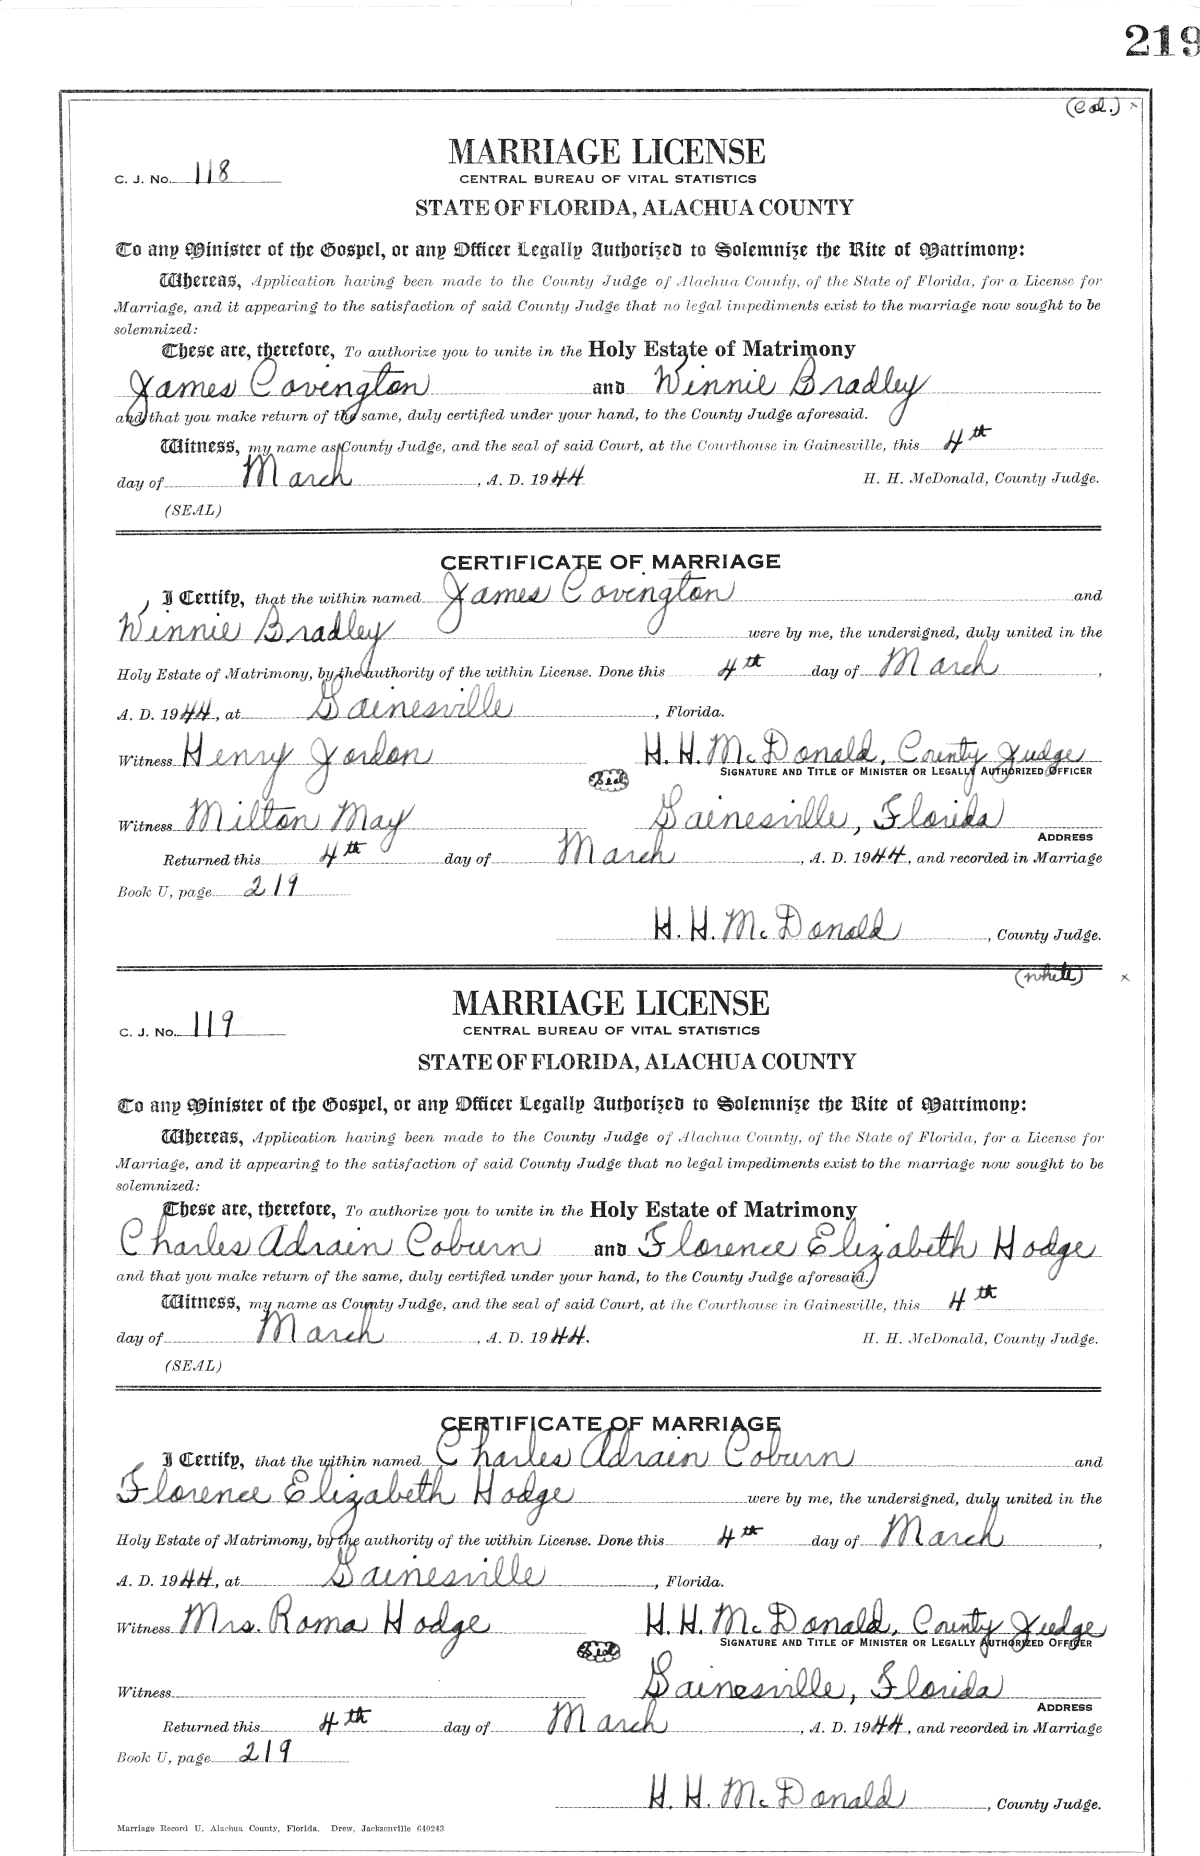 219
(Col.) x
MARRIAGE LICENSE
C. J. No. 118
CENTRAL BUREAU OF VITAL STATISTICS
STATE OF FLORIDA, ALACHUA COUNTY
To any Minister of the Gospel, or any Officer Legally Authorized to Solemnize the Rite of Matrimony:
Whereas, Application having been made to the County Judge of Alachua County, of the State of Florida, for a License for
Marriage, and it appearing to the satisfaction of said County Judge that no legal impediments exist to the marriage now sought to be
solemnized:
These are, therefore, To authorize you to unite in the Holy Estate of Matrimony
James Covington and Winnie Bradley
and that you make return of the same, duly certified under your hand, to the County Judge aforesaid.
Witness, my name as County Judge, and the seal of said Court, at the Courthouse in Gainesville, this 4th
day of March, A. D. 1944 H. H. McDonald, County Judge.
(SEAL)
CERTIFICATE OF MARRIAGE
I Certify, that the within named James Covington and
Winnie Bradley were by me, the undersigned, duly united in the
Holy Estate of Matrimony, by the authority of the within License. Done this 4th day of March,
A. D. 1944, at Gainesville, Florida.
Witness Henry Jordon H. H. McDonald, County Judge
Seal SIGNATURE AND TITLE OF MINISTER OR LEGALLY AUTHORIZED OFFICER
Witness Milton May Gainesville, Florida
ADDRESS
Returned this 4th day of March, A. D. 1944, and recorded in Marriage
Book U, page 219
H. H. McDonald, County Judge.
(white) x
MARRIAGE LICENSE
C. J. No. 119
CENTRAL BUREAU OF VITAL STATISTICS
STATE OF FLORIDA, ALACHUA COUNTY
To any Minister of the Gospel, or any Officer Legally Authorized to Solemnize the Rite of Matrimony:
Whereas, Application having been made to the County Judge of Alachua County, of the State of Florida, for a License for
Marriage, and it appearing to the satisfaction of said County Judge that no legal impediments exist to the marriage now sought to be
solemnized:
These are, therefore, To authorize you to unite in the Holy Estate of Matrimony
Charles Adrain Coburn and Florence Elizabeth Hodge
and that you make return of the same, duly certified under your hand, to the County Judge aforesaid.
Witness, my name as County Judge, and the seal of said Court, at the Courthouse in Gainesville, this 4th
day of March, A. D. 1944. H. H. McDonald, County Judge.
(SEAL)
CERTIFICATE OF MARRIAGE
I Certify, that the within named Charles Adrain Coburn and
Florence Elizabeth Hodge were by me, the undersigned, duly united in the
Holy Estate of Matrimony, by the authority of the within License. Done this 4th day of March,
A. D. 1944, at Gainesville, Florida.
Witness Mrs. Roma Hodge H. H. McDonald, County Judge
Seal SIGNATURE AND TITLE OF MINISTER OR LEGALLY AUTHORIZED OFFICER
Witness Gainesville, Florida
ADDRESS
Returned this 4th day of March, A. D. 1944, and recorded in Marriage
Book U, page 219
H. H. McDonald, County Judge.
Marriage Record U, Alachua County, Florida. Drew, Jacksonville 640243